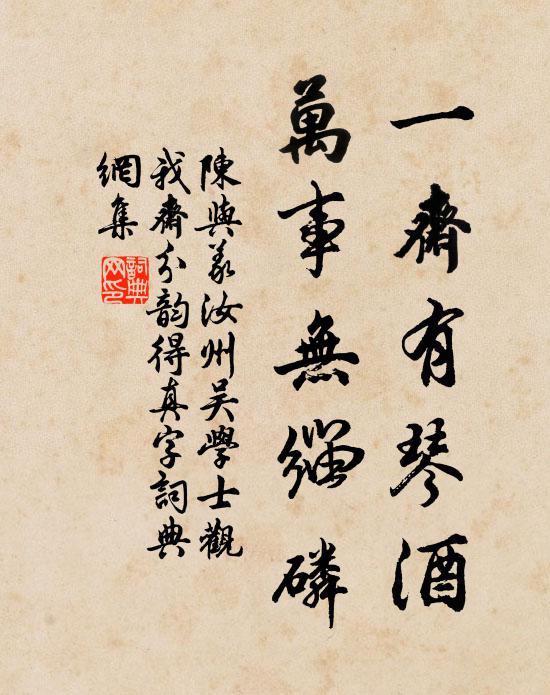 一齋有琴酒
萬事無緇磷
陳與義汝州吳學士觀
我齋分韵得真字詞典
網集
詞典
网印